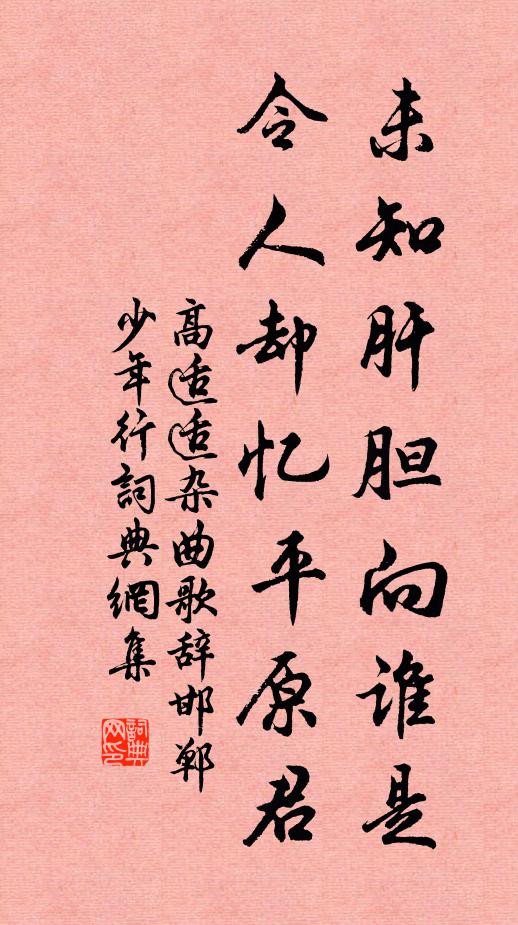 未知肝胆向谁是
令人却忆平原君
高适适杂曲歌辞邯郸
少年行詞典網集
詞典
网印